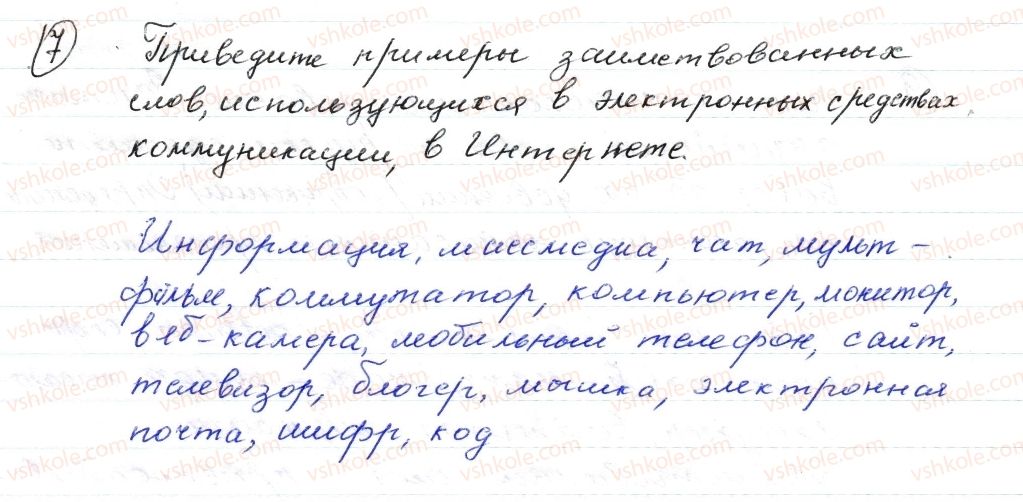 7 Приведите примеры заимствованных
слов, использующихся в электронных средствах
коммуникации, в Интернете.
Информация, массмедиа, чат, мульт-
фильм, коммутатор, компьютер, монитор,
вэб-камера, мобильный телефон, сайт,
телевизор, блогер, мышка, электронная
почта, шифр, код